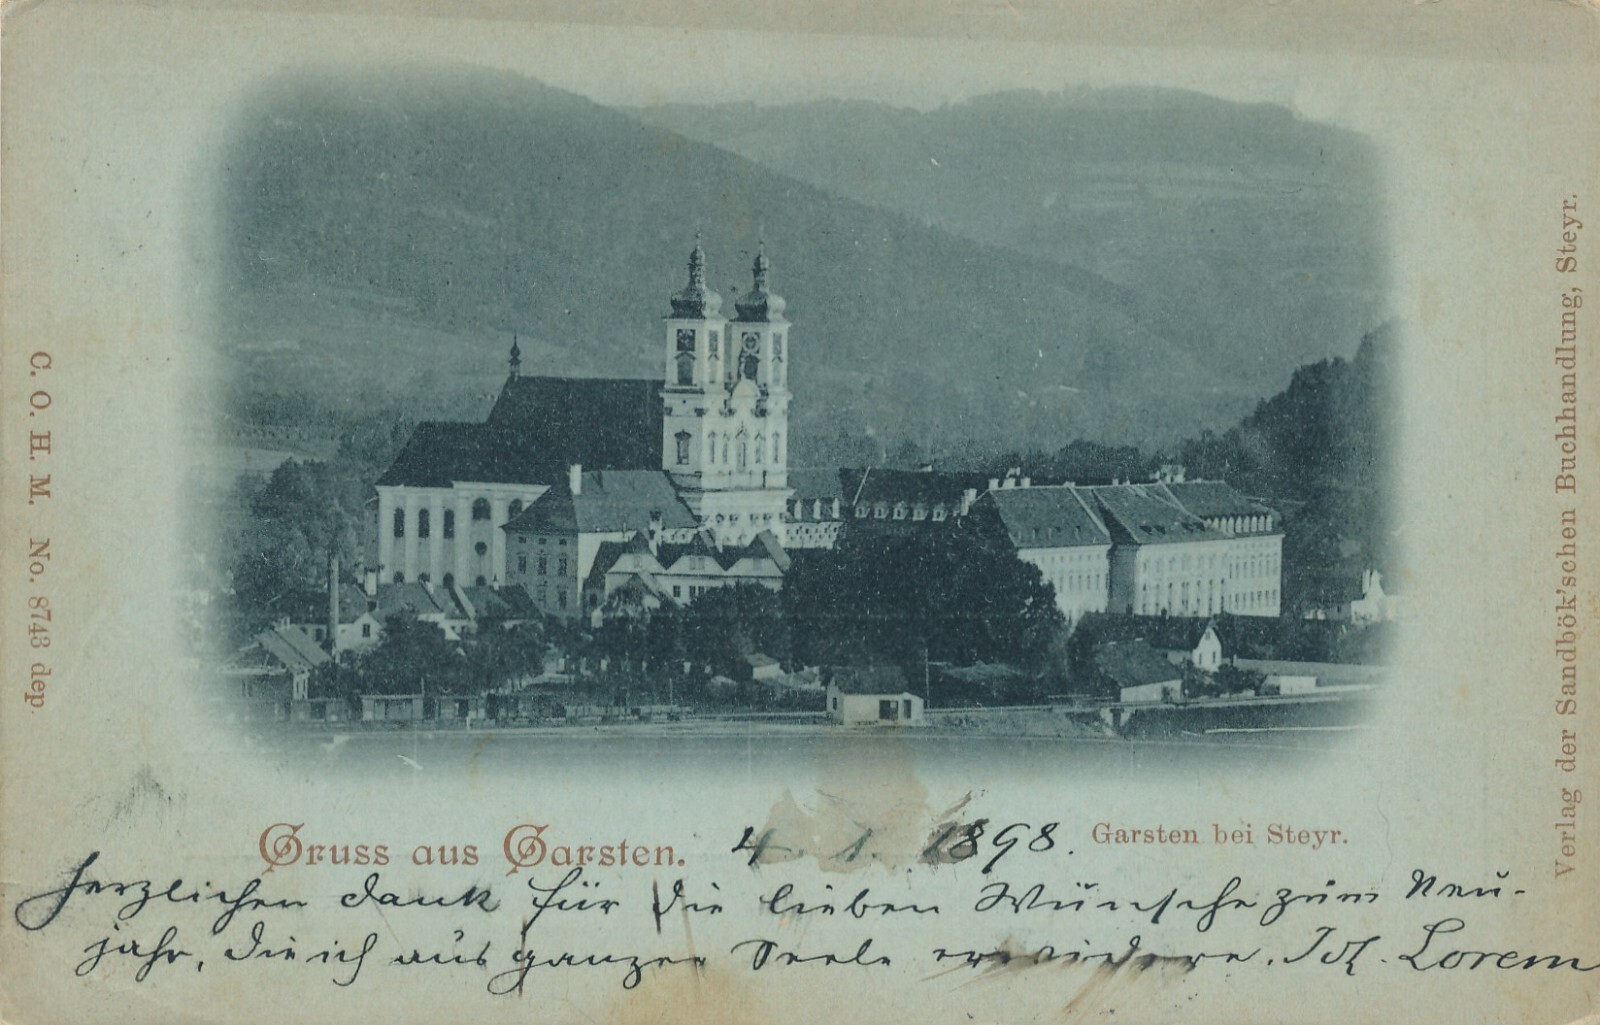 C. O. H. M. No. 8743 dep.
Verlag der Sandbök'schen Buchhandlung, Steyr.
Gruss aus Garsten.
4. 1. 1898.
Garsten bei Steyr.
Herzlichen Dank für die lieben Wünsche zum Neu-
jahr, die ich aus ganzer Seele erwidere. Lorenz